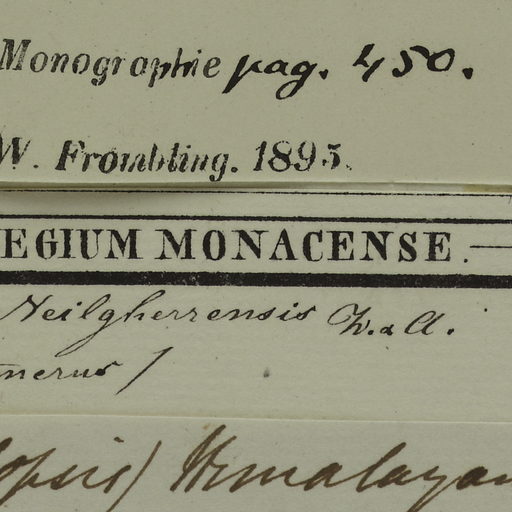 Monographie pag. 450.
W. Frombling. 1895.
EGIUM MONACENSE.
Neilgherrensis W. & A.
merus /
opsis) Himalayan